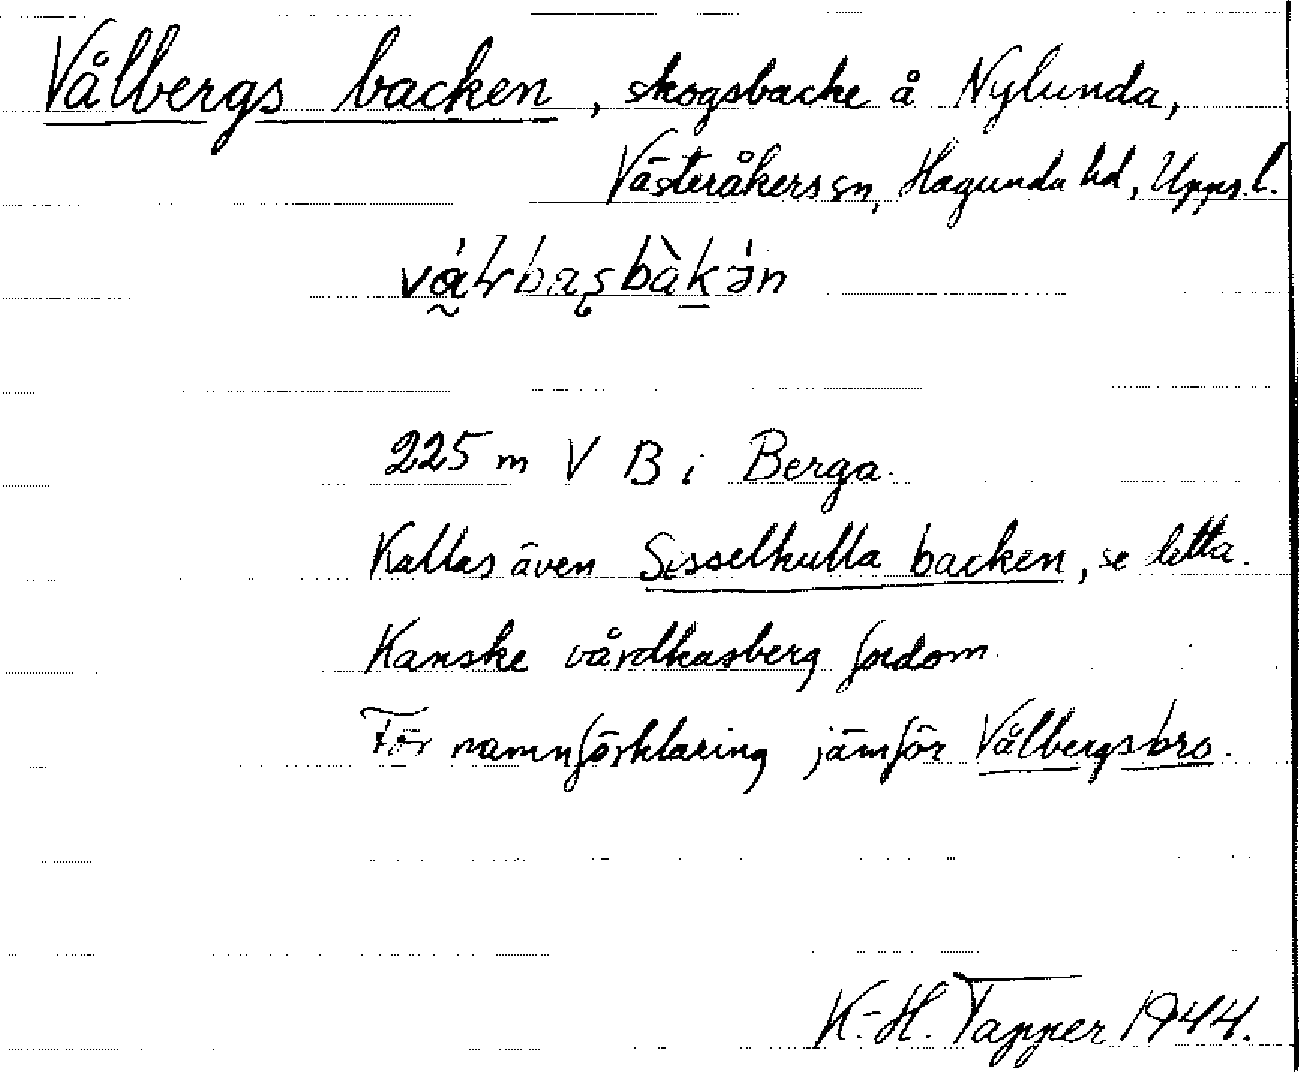 Vålbergs backen, skogsbacke å Nylunda,
Västeråkers sn, Hagunda hd, Upps. l.
225 m V B i Berga.
Kallas även Sisselkulla backen, se detta.
Kanske vårdkasberg fordom.
För namnförklaring jämför Vålbergsbro.
K.-H. Tapper 1944.